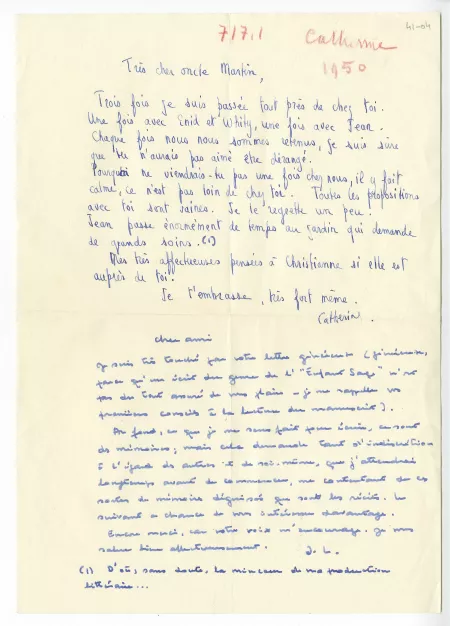 41-04
71711
Catherine
1950
Très cher oncle Martin,
Trois fois je suis passée tout près de chez toi.
Une fois avec Enid et Whity, une fois avec Jean.
Chaque fois nous nous sommes retenus, je suis sûre
que tu n'aurais pas aimé être dérangé.
Pourquoi ne viendrais-tu pas une fois chez nous, il y fait
calme, ce n'est pas loin de chez toi. Toutes les propositions
avec toi sont vaines. Je le regrette un peu.
Jean passe énormément de temps au jardin qui demande
de grands soins. (1)
Mes très affectueuses pensées à Christianne si elle est
auprès de toi.
Je t'embrasse, très fort même.
Catherine.
cher ami
je suis très touché par votre lettre généreuse (généreuse,
parce qu'un écrit du genre de l'"Enfant Sage" n'est
pas du tout assuré de vous plaire - je me rappelle vos
premiers conseils à la lecture du manuscrit).
Au fond, ce que je me sens fait pour écrire, ce sont
des mémoires; mais cela demande tant d'indiscrétion
à l'égard des autres et de soi-même, que j'attendrai
longtemps avant de commencer, me contentant de ces
sortes de mémoire déguisés que sont les récits. Le
suivant a chance de vous intéresser davantage.
Encore merci, car votre voix m'encourage. Je vous
salue bien affectueusement. J. L.
(1) D'où, sans doute, la minceur de ma production
littéraire...